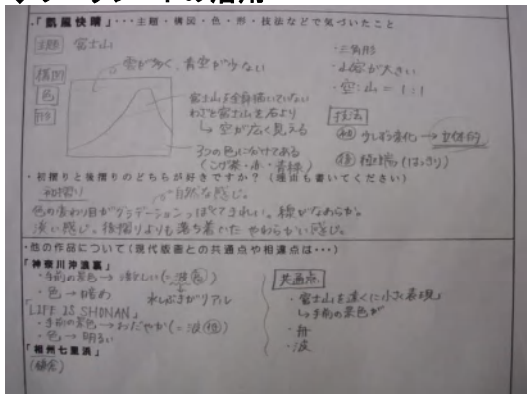 ・「凱風快晴」・・・主題・構図・色・形・技法などで気づいたこと
主題 富士山
構図
色
形
雲が多く、青空が少ない
富士山は全身描いていない
わざと富士山を右より
↳ 空が広く見える
3つの色に分けてある
(こげ茶・赤・青緑)
・三角形
・山容が大きい
・空:山=1:1
技法
初 少しずつ変化→立体的
後 極端(はっきり)
・初摺りと後摺りのどちらが好きですか?(理由も書いてください)
初摺り 自然な感じ。
色の変わり目がグラデーションっぽくてきれい。線がなめらか。
淡い感じ。後摺りよりも落ち着いたやわらかい感じ。
・他の作品について(現代版画との共通点や相違点は・・・)
「神奈川沖浪裏」
・手前の景色→激しい(=波
・色→暗め 水しぶきがリアル
「LIFE IS SHONAN」
・手前の景色→おだやか(=波
・色→明るい
「相州七里浜」
(鎌倉)
共通点
・富士山を遠くに小さく表現
↳手前の景色が
・舟
・波